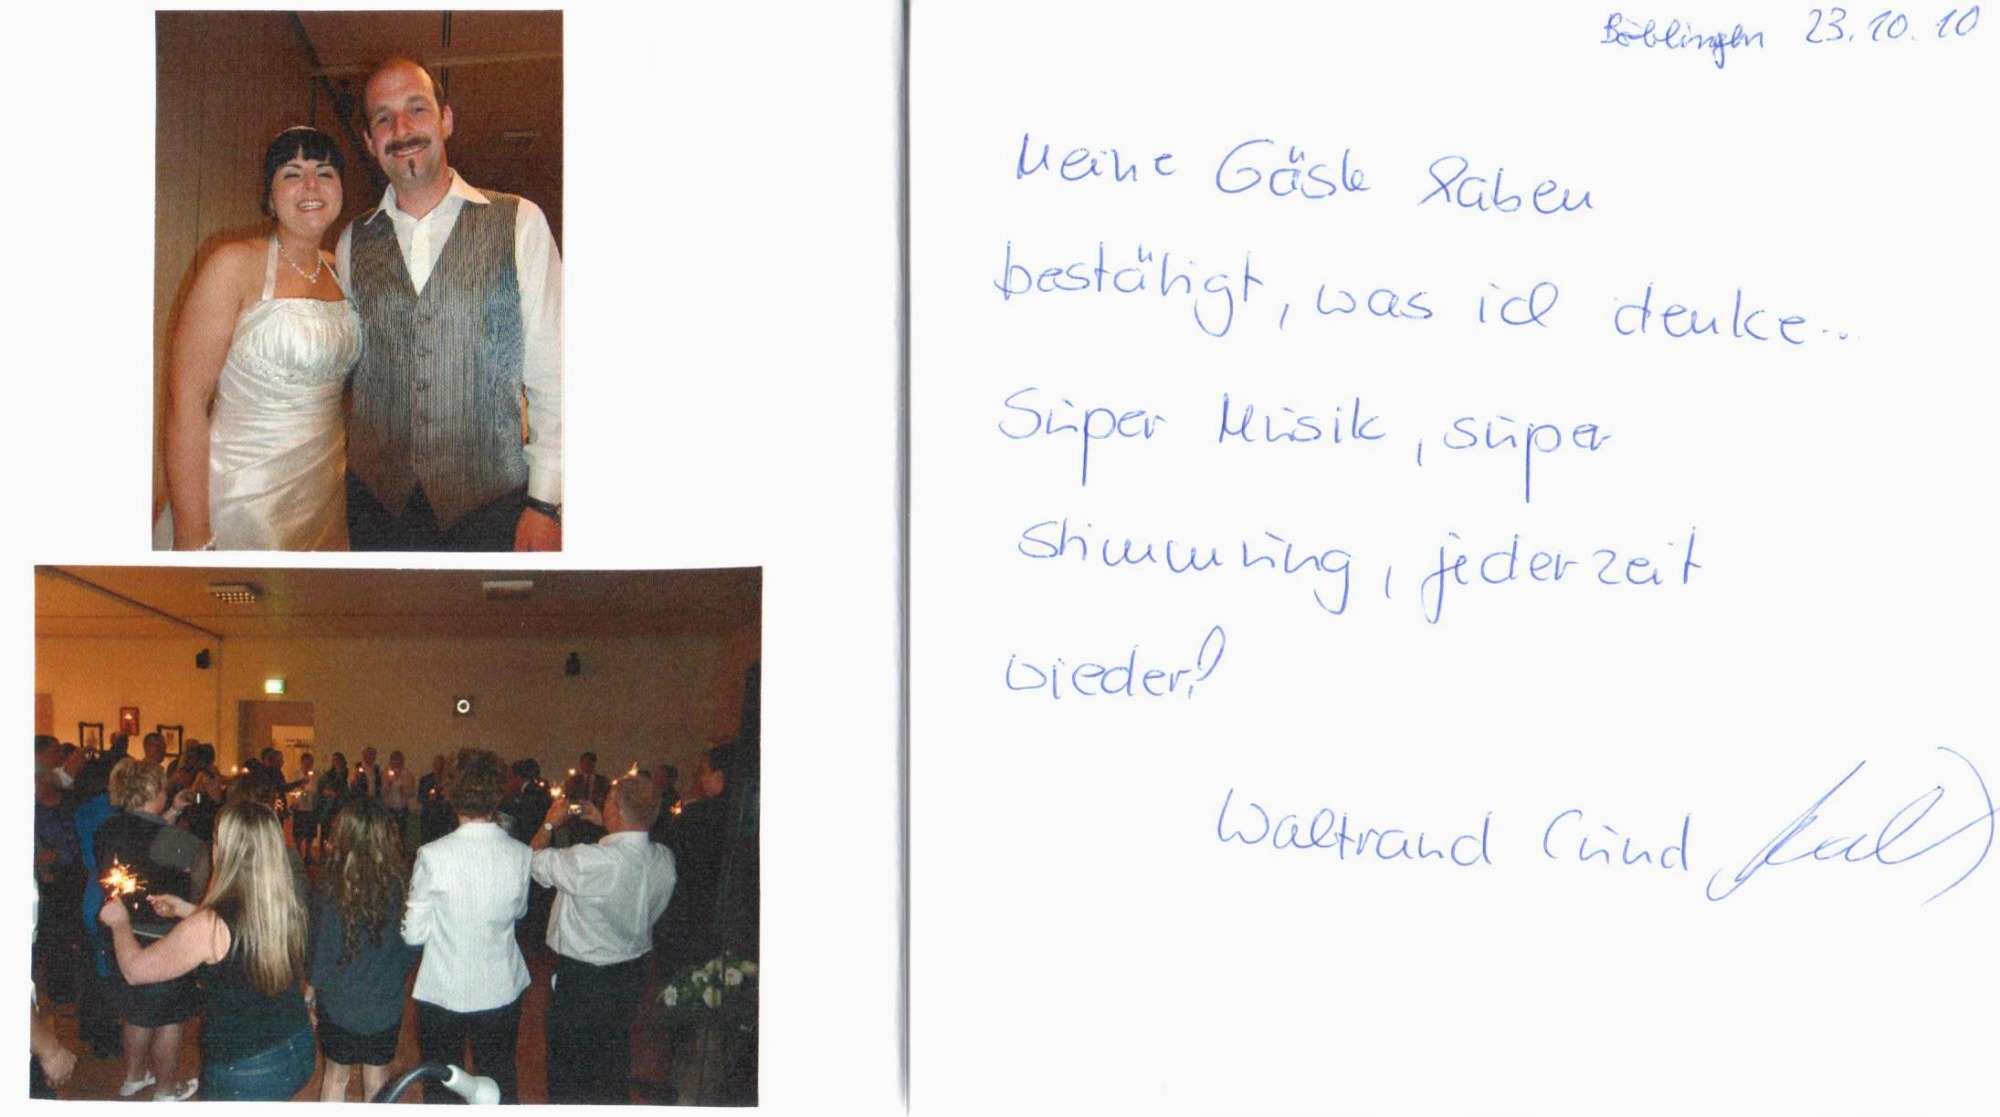 Böblingen 23.10.10
Meine Gäste haben
bestätigt, was ich denke...
Super Musik, super
Stimmung, jederzeit
wieder!
Waltraud